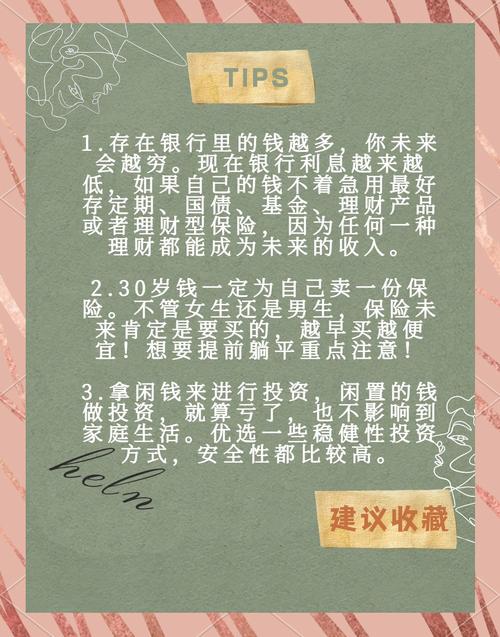 TIPS
1.存在银行里的钱越多，你未来
会越穷。现在银行利息越来越
低，如果自己的钱不着急用最好
存定期、国债、基金、理财产品
或者理财型保险，因为任何一种
理财都能成为未来的收入。
2.30岁钱一定为自己卖一份保
险。不管女生还是男生，保险未
来肯定是要买的，越早买越便
宜！想要提前躺平重点注意！
3.拿闲钱来进行投资，闲置的钱
做投资，就算亏了，也不影响到
家庭生活。优选一些稳健性投资
方式，安全性都比较高。
heln
建议收藏